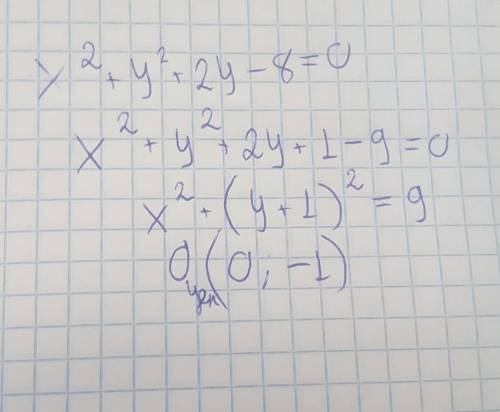 x² + y² + 2y - 8 = 0
x² + y² + 2y + 1 - 9 = 0
x² + (y + 1)² = 9
O (0; -1)